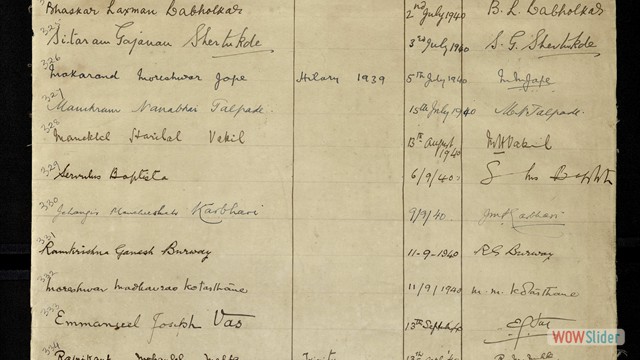 Bhaskar Laxman Dabholkar 2nd July 1940 B. L. Dabholkar
325 Sitaram Gajanan Shertukde 3rd July 1940 S. G. Shertukde
326 Makarand Moreshwar Jape Hilary 1939 5th July 1940 M.M.Jape
327 Manchram Nanabhai Talpade. 15th July 1940 M.N.Talpade.
328 Maneklal Harilal Vakil 13th August 1940 M H Vakil
329 Servulus Baptista 6/9/40. S Baptista
330 Jehangir Manchershah Karbhari 9/9/40. JM Karbhari
331 Ramkrishna Ganesh Burway 11-9-1940 R G Burway
332 Moreshwar Madhavrao Kotasthane 11/9/1940 M. M. Kotasthane
333 Emmanuel Joseph Vas 13th Sept 1940 E J Vas
334
WOWSlider